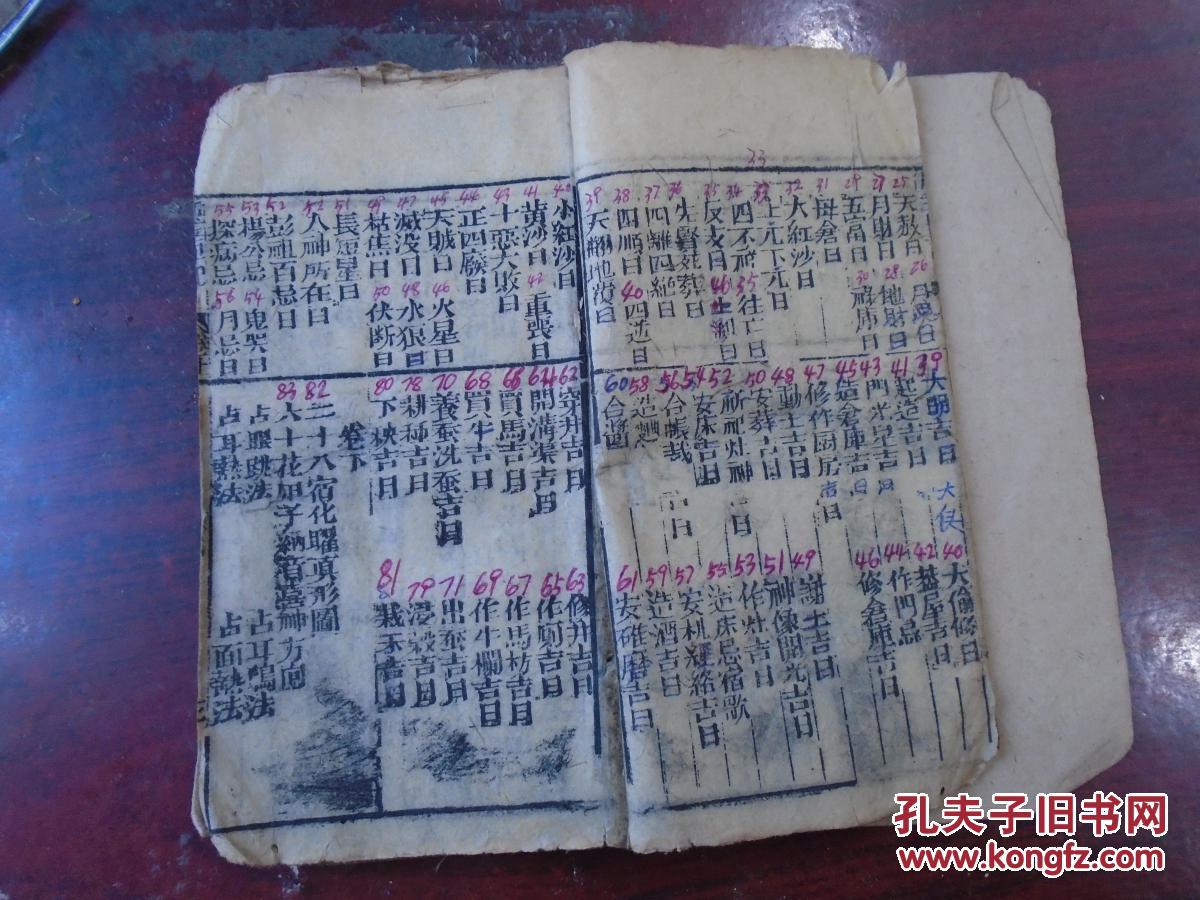 33
25 天赦日 26 月恩日
27 月財日 28 地財日
29 五富日 30 祿庫日
31 母倉日
32 大紅沙日
上元下元日
34 四不祥 35 往亡日
35 反支日 46
36 先賢死葬日
37 四離四絕日
38 四順日 40 四逆日
39 天翻地覆日
39 大明吉日 40 大偷修日
41 起造吉日 42 蓋屋吉日
43 門光星吉日 44 作門忌
45 造倉庫吉日 46 修倉庫吉日
47 修作厨房吉日
48 動土吉日 49 謝土吉日
50 安葬吉日 51 神像開光吉日
52 祈祀灶神吉日 53 作灶吉日
54 安床吉日 55 造床忌宿歌
56 合帳裁吉日 57 安机經絡吉日
58 造酒 59 造酒吉日
60 合醬 61 安碓磨吉日
40 小紅沙日
41 黄沙日 42 重喪日
43 十惡大敗日
44 正四廢日
45 天賊日 46 火星日
47 滅没日 48 水狼日
49 枯焦日 50 伏斷日
51 長短星日
52 人神所在日
52 彭祖百忌日
53 楊公忌 54 鬼哭日
55 探病忌 56 月忌日
62 穿井吉日 63 修井吉日
64 開溝渠吉日 65 作廁吉日
66 買馬吉日 67 作馬枋吉日
68 買牛吉日 69 作牛欄吉日
70 養蚕洗蚕吉日 71 出蚕吉日
78 耕種吉日 79 浸穀吉日
80 下秧吉日 81 栽禾吉日
卷下
82 二十八宿化曜真形圖
83 六十花甲子納音喜神方向
占眼跳法 占耳鳴法
占耳熱法 占面熱法
孔夫子旧书网
www.kongfz.com